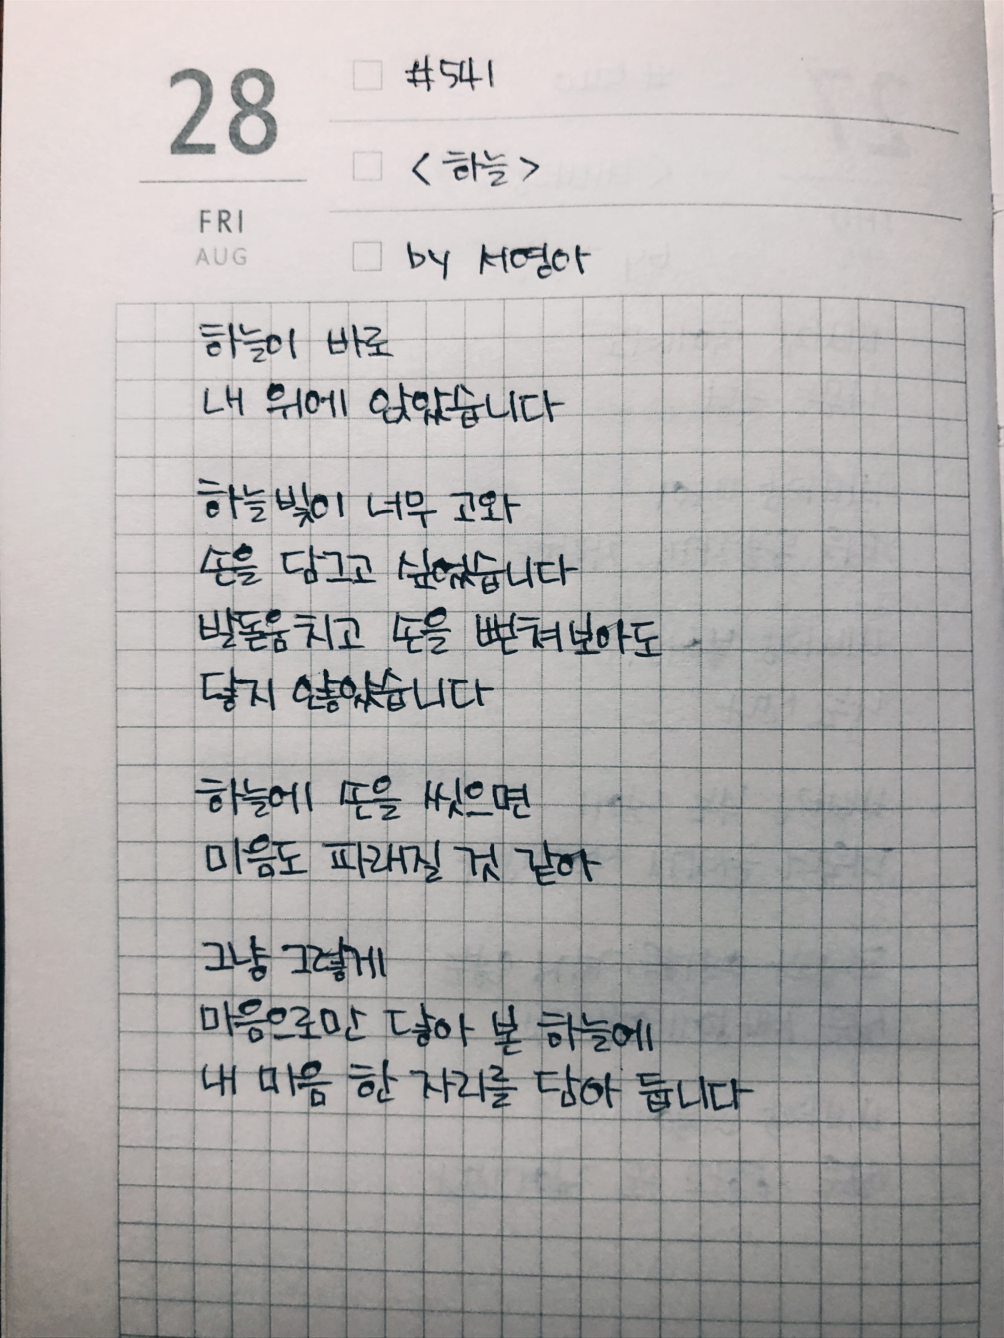 28
FRI
AUG
#541
<하늘>
by 서영아
하늘이 바로
내 위에 앉았습니다
하늘빛이 너무 고와
손을 담그고 싶었습니다
발돋움치고 손을 뻗쳐보아도
닿지 않았습니다
하늘에 손을 씻으면
마음도 파래질 것 같아
그냥 그렇게
마음으로만 닿아 본 하늘에
내 마음 한 자리를 담아 둡니다